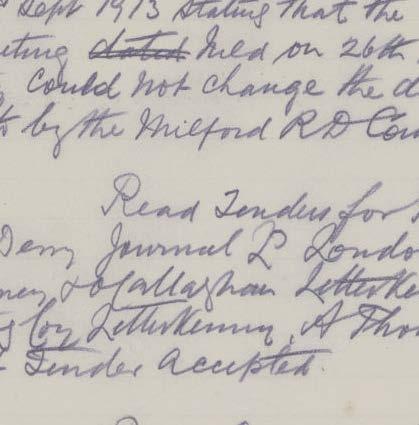 Sept 1913 stating that the
eting dated held on 26th
could not change the d
to by the Milford R D Cou
Read Tenders for
Derry Journal Ld Londo
ney & O'Callaghan Letterke
g Coy Letterkenny, A Tho
Tender Accepted.